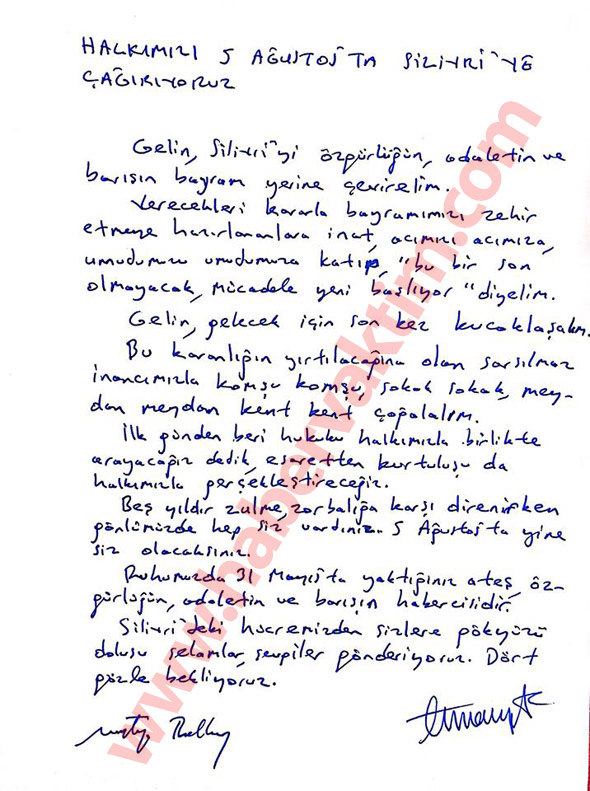 HALKIMIZI 5 AĞUSTOS'TA SİLİVRİ'YE
ÇAĞIRIYORUZ
Gelin, Silivri'yi özgürlüğün, adaletin ve
barışın bayram yerine çevirelim.
Verecekleri kararla bayramımızı zehir
etmeye hazırlananlara inat, acımızı acımıza,
umudumuzu umudumuza katıp, "bu bir son
olmayacak, mücadele yeni başlıyor" diyelim.
Gelin, gelecek için son kez kucaklaşalım.
Bu karanlığın yırtılacağına olan sarsılmaz
inancımızla komşu komşu, sokak sokak, mey-
dan meydan kent kent çoğalalım.
İlk günden beri hukuku halkımızla birlikte
arayacağız dedik, esaretten kurtuluşu da
halkımızla gerçekleştireceğiz.
Beş yıldır zulme, zorbalığa karşı direnirken
gönlümüzde hep siz vardınız. 5 Ağustos'ta yine
siz olacaksınız.
Ruhumuzda 31 Mayıs'ta yaktığınız ateş, öz-
gürlüğün, adaletin ve barışın habercisidir.
Silivri'deki hücremizden sizlere gökyüzü
dolusu selamlar, sevgiler gönderiyoruz. Dört
gözle bekliyoruz.
www.habervaktim.com